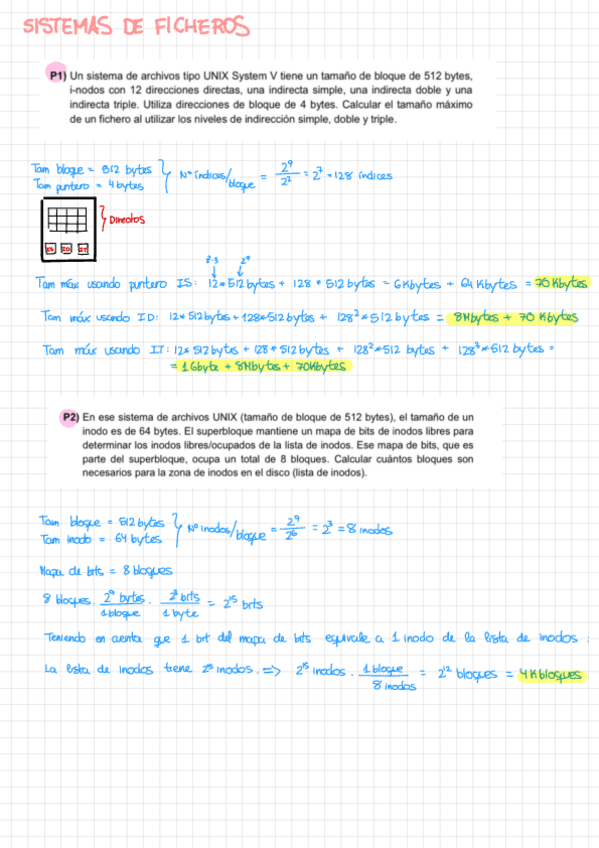 SISTEMAS DE FICHEROS
P1) Un sistema de archivos tipo UNIX System V tiene un tamaño de bloque de 512 bytes,
i-nodos con 12 direcciones directas, una indirecta simple, una indirecta doble y una
indirecta triple. Utiliza direcciones de bloque de 4 bytes. Calcular el tamaño máximo
de un fichero al utilizar los niveles de indirección simple, doble y triple.
Tam bloque = 512 bytes
Tam puntero = 4 bytes
Nº índices/bloque = 2⁹/2² = 2⁷ = 128 índices
Directos
IS ID IT
8·3 2⁹
Tam máx usando puntero IS: 12*512 bytes + 128 * 512 bytes = 6Kbytes + 64 Kbytes = 70 Kbytes
Tam máx usando ID: 12* 512 bytes + 128*512 bytes + 128²*512 bytes = 8Mbytes + 70 Kbytes
Tam máx usando IT: 12* 512 bytes + 128 * 512 bytes + 128²*512 bytes + 128³*512 bytes =
= 1Gbyte + 8Mbytes + 70Kbytes
P2) En ese sistema de archivos UNIX (tamaño de bloque de 512 bytes), el tamaño de un
inodo es de 64 bytes. El superbloque mantiene un mapa de bits de inodos libres para
determinar los inodos libres/ocupados de la lista de inodos. Ese mapa de bits, que es
parte del superbloque, ocupa un total de 8 bloques. Calcular cuántos bloques son
necesarios para la zona de inodos en el disco (lista de inodos).
Tam bloque = 512 bytes
Tam inodo = 64 bytes
Nº inodos/bloque = 2⁹/2⁶ = 2³ = 8 inodos
Mapa de bits = 8 bloques
8 bloques · 2⁹ bytes/1 bloque · 2³ bits/1 byte = 2¹⁵ bits
Teniendo en cuenta que 1 bit del mapa de bits equivale a 1 inodo de la lista de inodos :
La lista de inodos tiene 2¹⁵ inodos. => 2¹⁵ inodos · 1 bloque/8 inodos = 2¹² bloques = 4 Kbloques